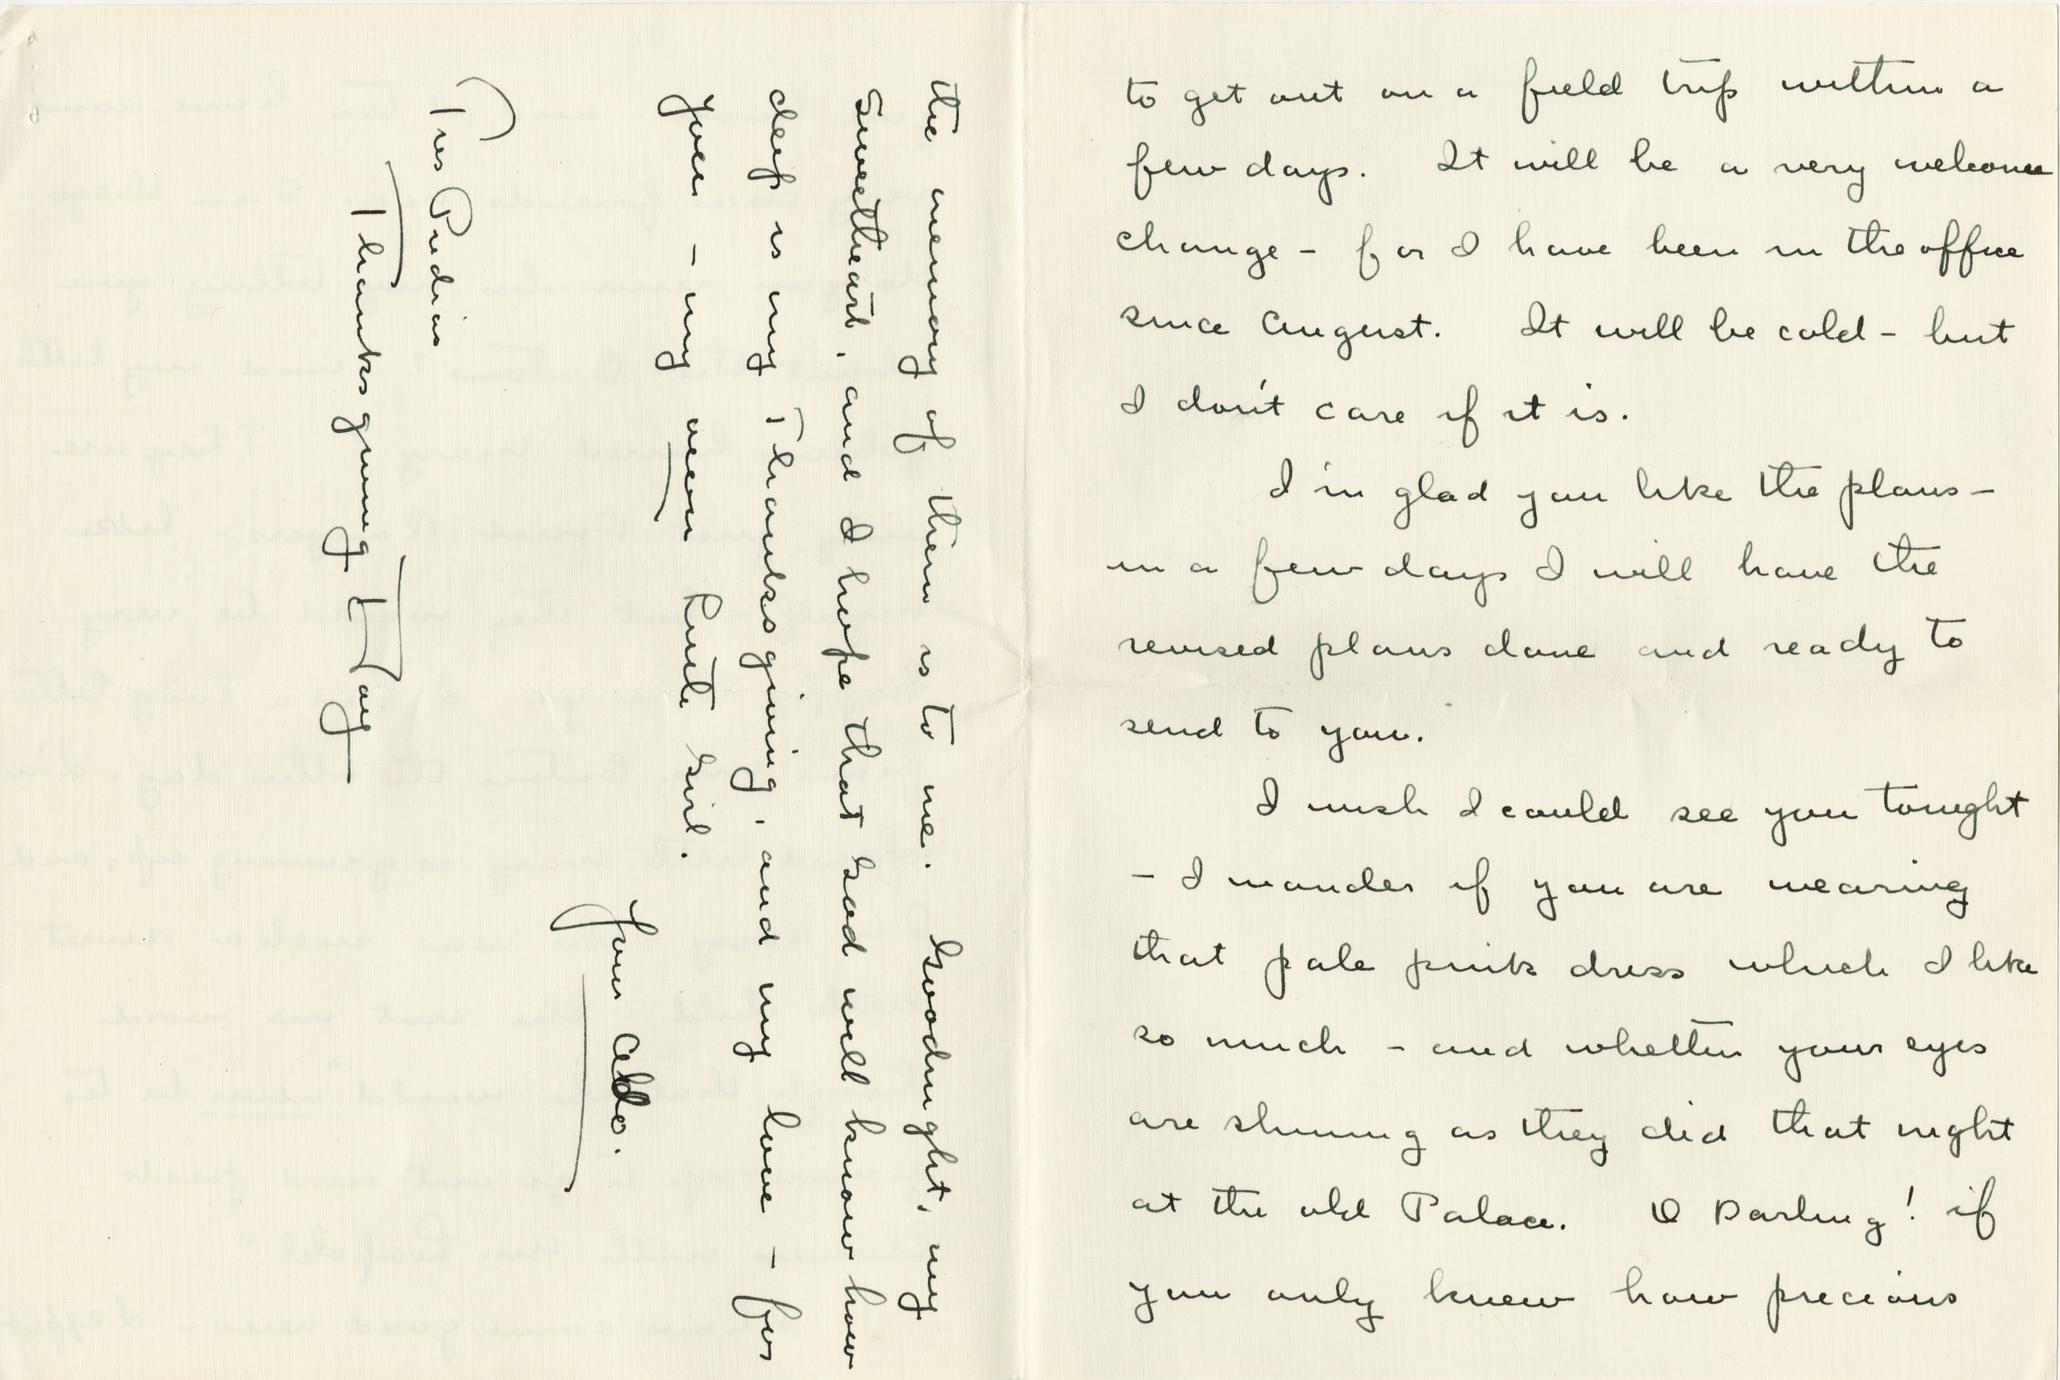 to get out on a field trip within a
few days. It will be a very welcome
change - for I have been in the office
since August. It will be cold - but
I don't care if it is.
I'm glad you like the plans -
in a few days I will have the
revised plans done and ready to
send to you.
I wish I could see you tonight
- I wonder if you are wearing
that pale pink dress which I like
so much - and whether your eyes
are shining as they did that night
at the old Palace. O Darling! if
you only knew how precious
the memory of them is to me. Goodnight, my
Sweetheart, and I hope that God will know how
deep is my Thanksgiving, and my love - for
you - my own little Girl.
Your Aldo.
Tres Piedras
Thanksgiving Day